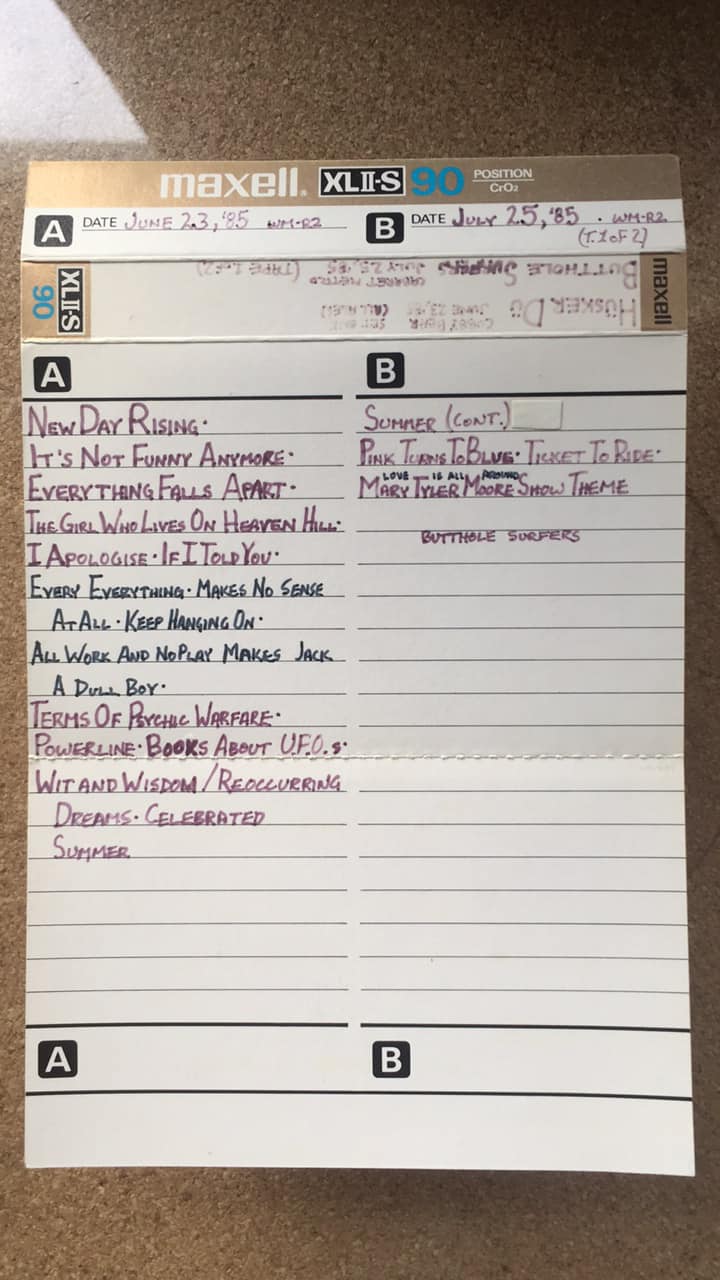 maxell. XLII-S 90 POSITION CrO2
A DATE JUNE 23, '85 WM-R2
B DATE JULY 25, '85 . WM-R2
(T.1 OF 2)
XLII-S 90
maxell
HÜSKER DÜ
JUNE 23, '85
BUTTHOLE SURFERS JULY 25, '85 (TAPE 1 OF 2)
CABARET METRO
A
NEW DAY RISING·
IT'S NOT FUNNY ANYMORE·
EVERYTHING FALLS APART·
THE GIRL WHO LIVES ON HEAVEN HILL·
I APOLOGISE· IF I TOLD YOU·
EVERY EVERYTHING· MAKES NO SENSE
AT ALL· KEEP HANGING ON·
ALL WORK AND NO PLAY MAKES JACK
A DULL BOY·
TERMS OF PSYCHIC WARFARE·
POWERLINE· BOOKS ABOUT U.F.O.s·
WIT AND WISDOM / REOCCURRING
DREAMS· CELEBRATED
SUMMER
B
SUMMER (CONT.)
PINK TURNS TO BLUE· TICKET TO RIDE·
LOVE IS ALL AROUND
MARY TYLER MOORE SHOW THEME
BUTTHOLE SURFERS
A
B